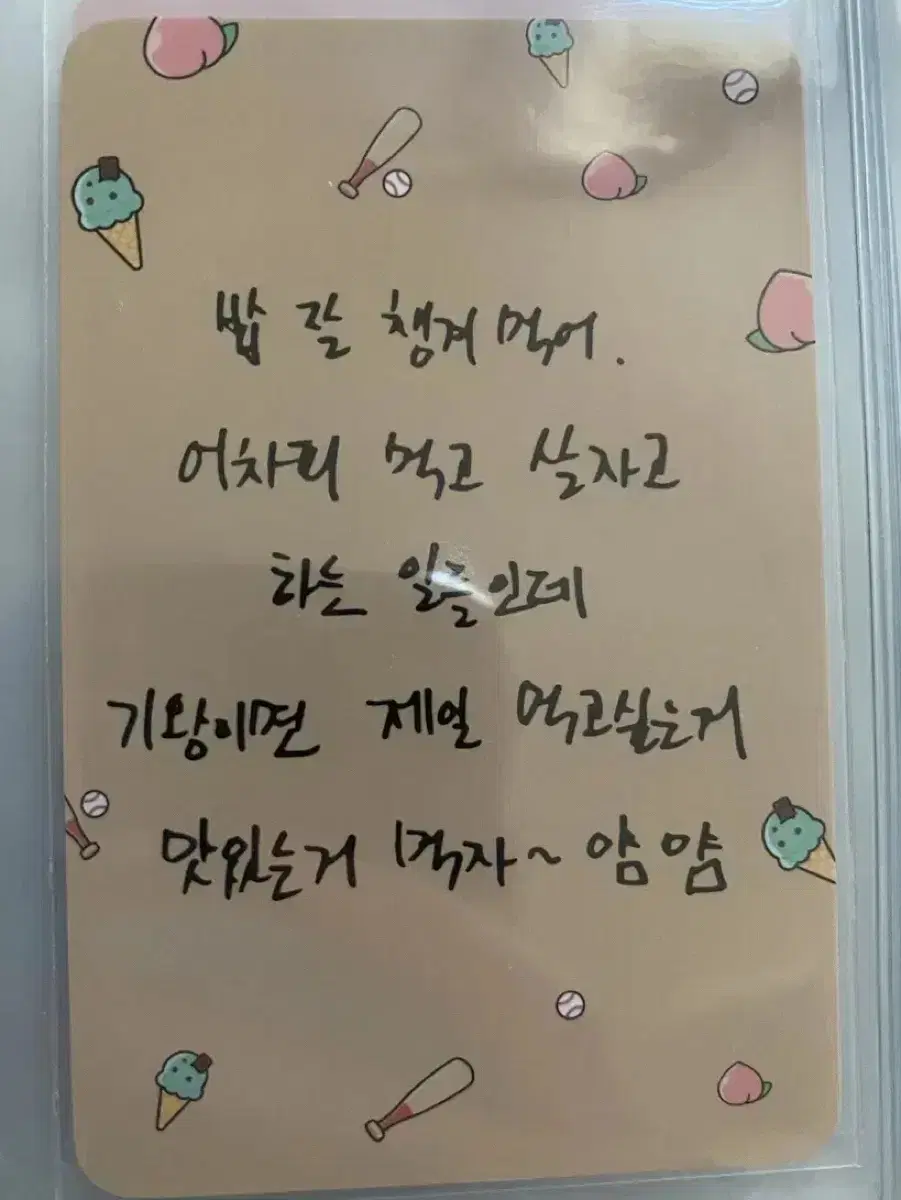 밥 잘 챙겨 먹어.
어차피 먹고 살자고
하는 일들인데
기왕이면 제일 먹고싶은거
맛있는거 먹자~ 얌 얌